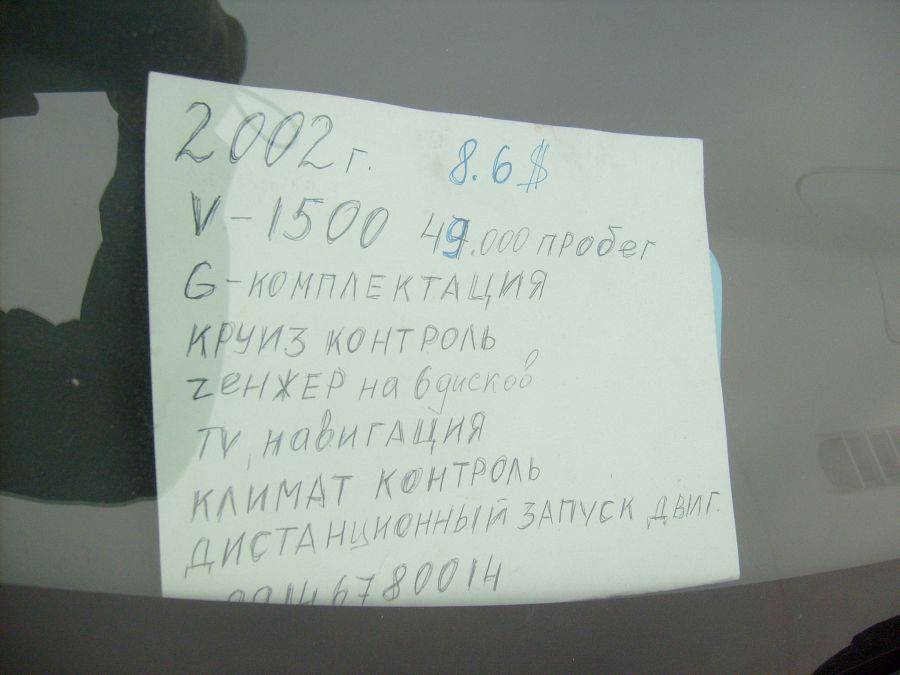 2002 г. 8.6 $
V-1500 49.000 пробег
G-комплектация
круиз контроль
ченжер на 6 дисков
TV, навигация
климат контроль
дистанционный запуск двиг.
89146780014